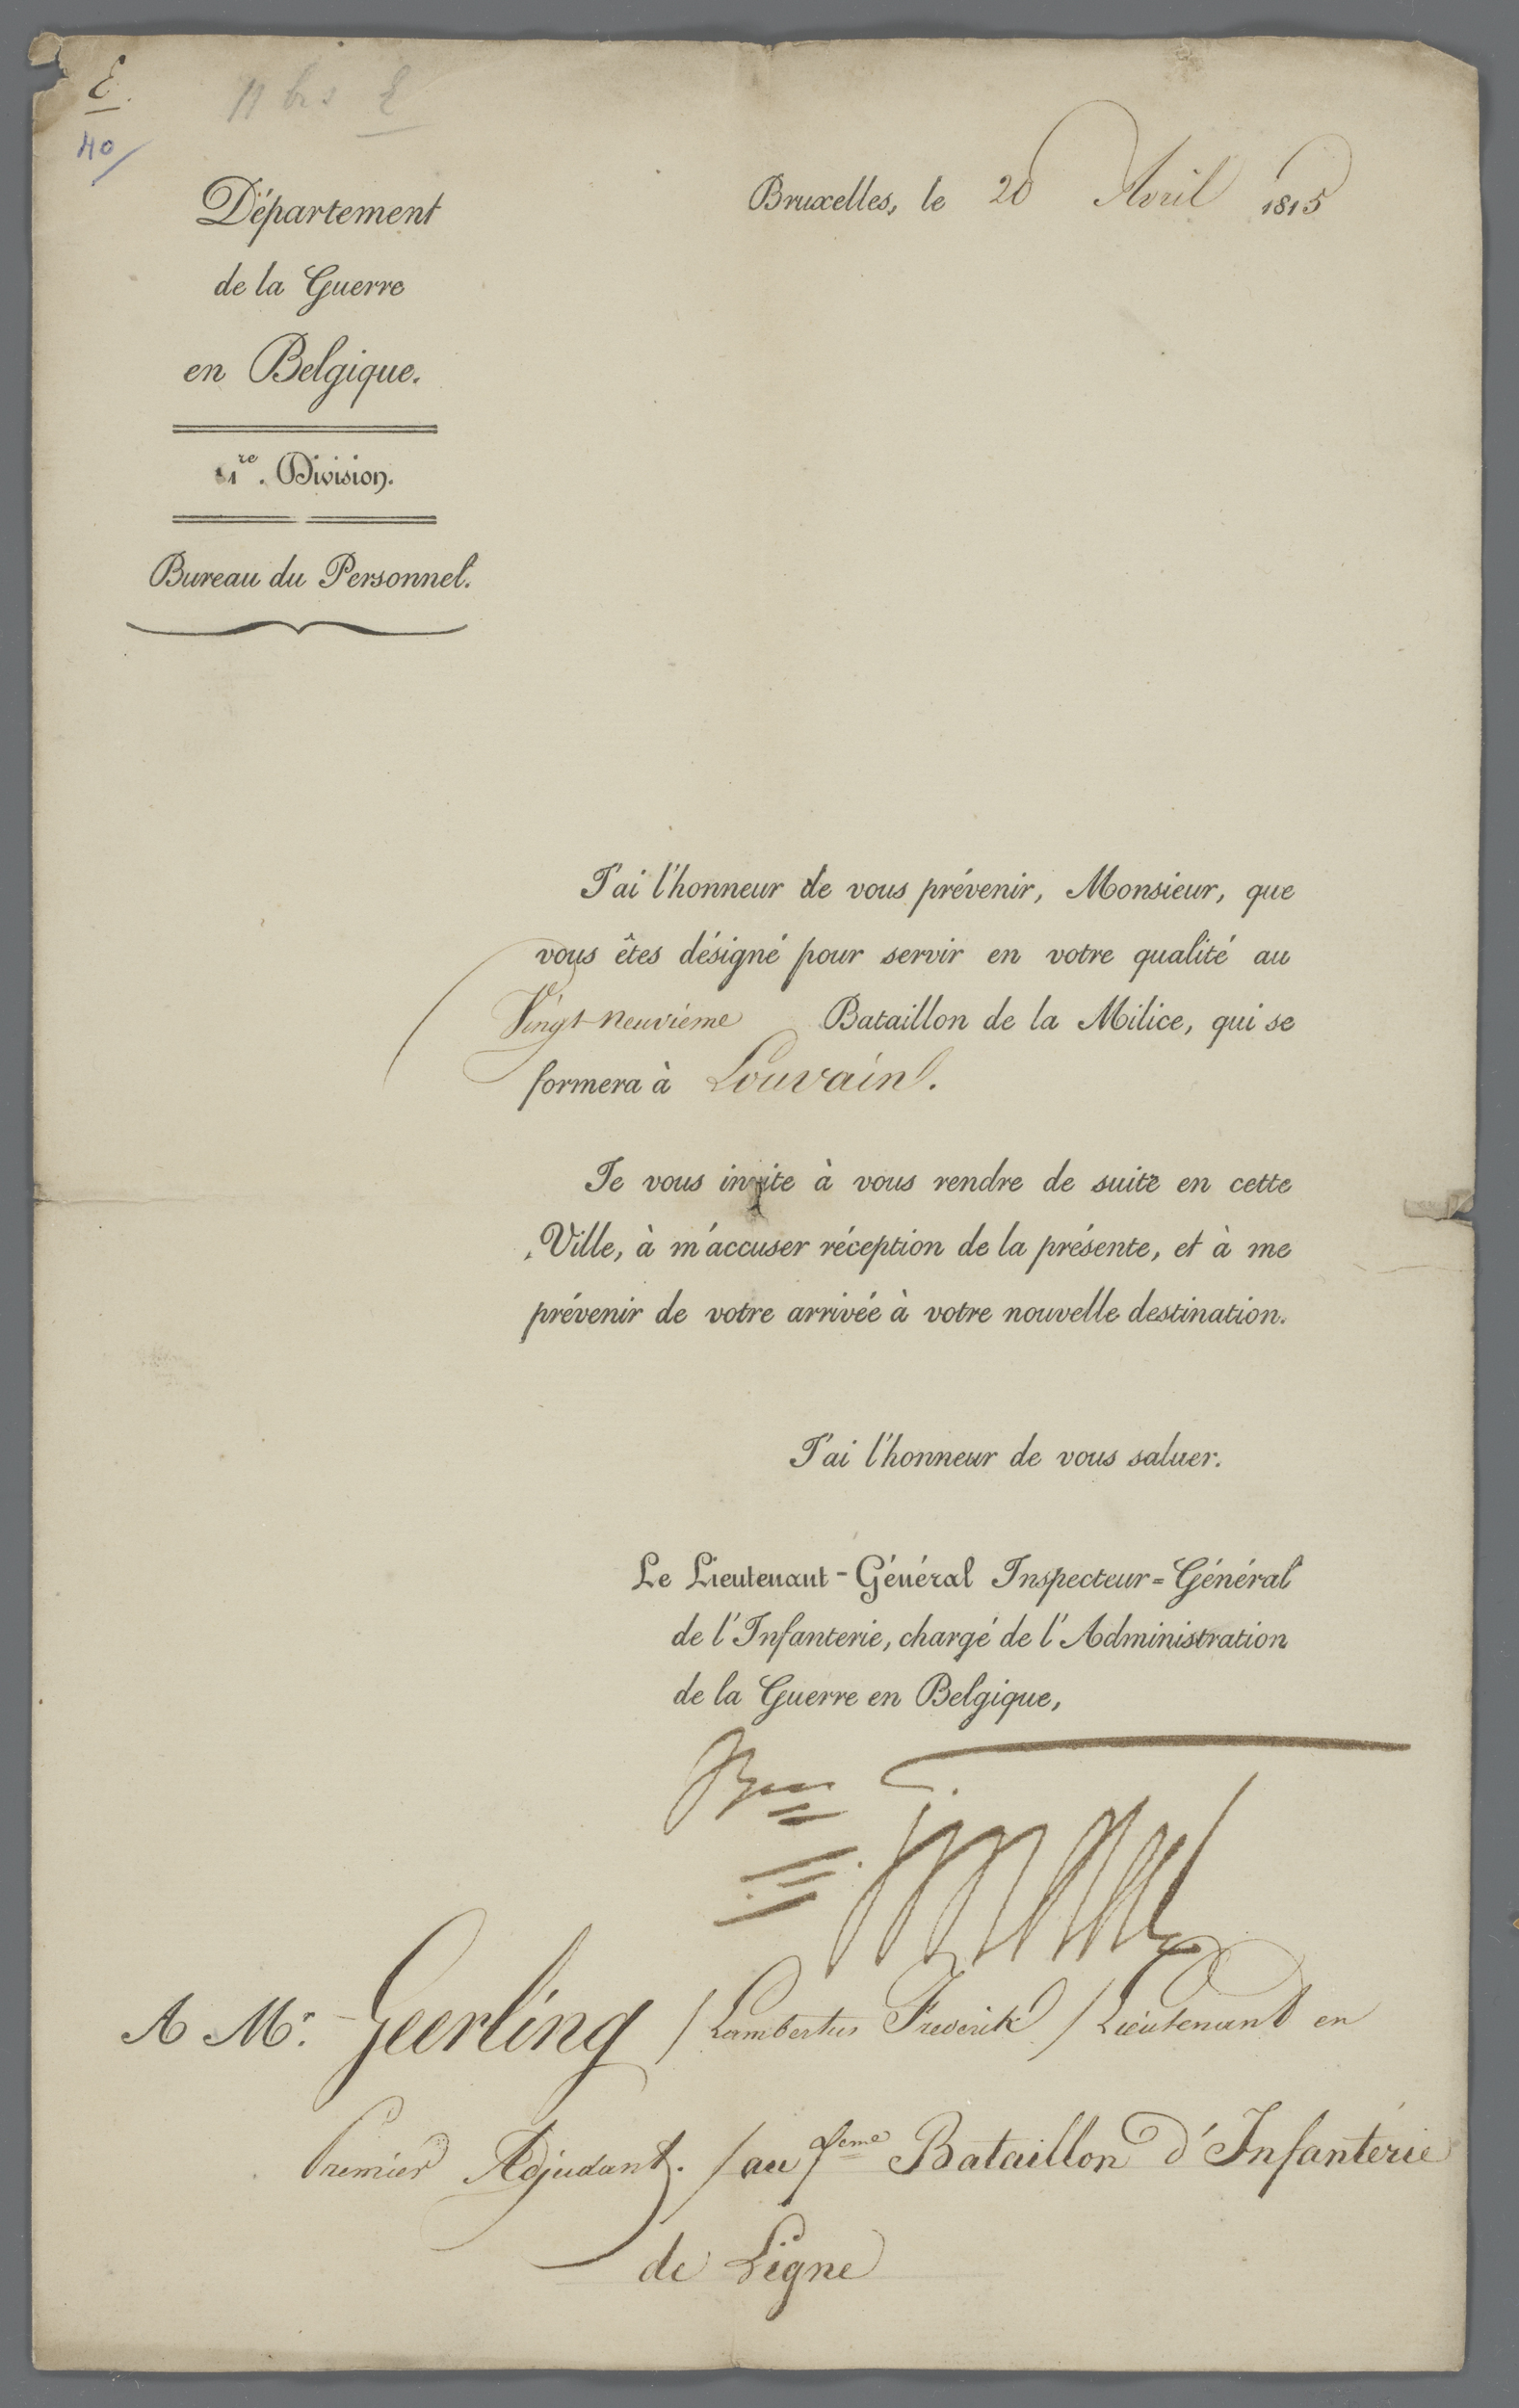 E.
11 bis E
40/
Département
de la Guerre
en Belgique.
1re. Division.
Bureau du Personnel.
Bruxelles, le 20 Avril 1815
J'ai l'honneur de vous prévenir, Monsieur, que
vous êtes désigné pour servir en votre qualité au
Vingt-neuvième Bataillon de la Milice, qui se
formera à Louvain.
Je vous invite à vous rendre de suite en cette
Ville, à m'accuser réception de la présente, et à me
prévenir de votre arrivée à votre nouvelle destination.
J'ai l'honneur de vous saluer.
Le Lieutenant-Général Inspecteur=Général
de l'Infanterie, chargé de l'Administration
de la Guerre en Belgique,
Bon
Tindal
A Mr. Geerling / Lambertus Frederik / Lieutenant en
Premier Adjudant. / au 7eme Bataillon d'Infanterie
de Ligne